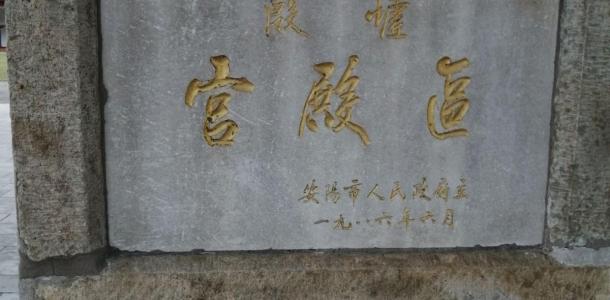 殷墟
宫殿區
安陽市人民政府立
一九八六年六月